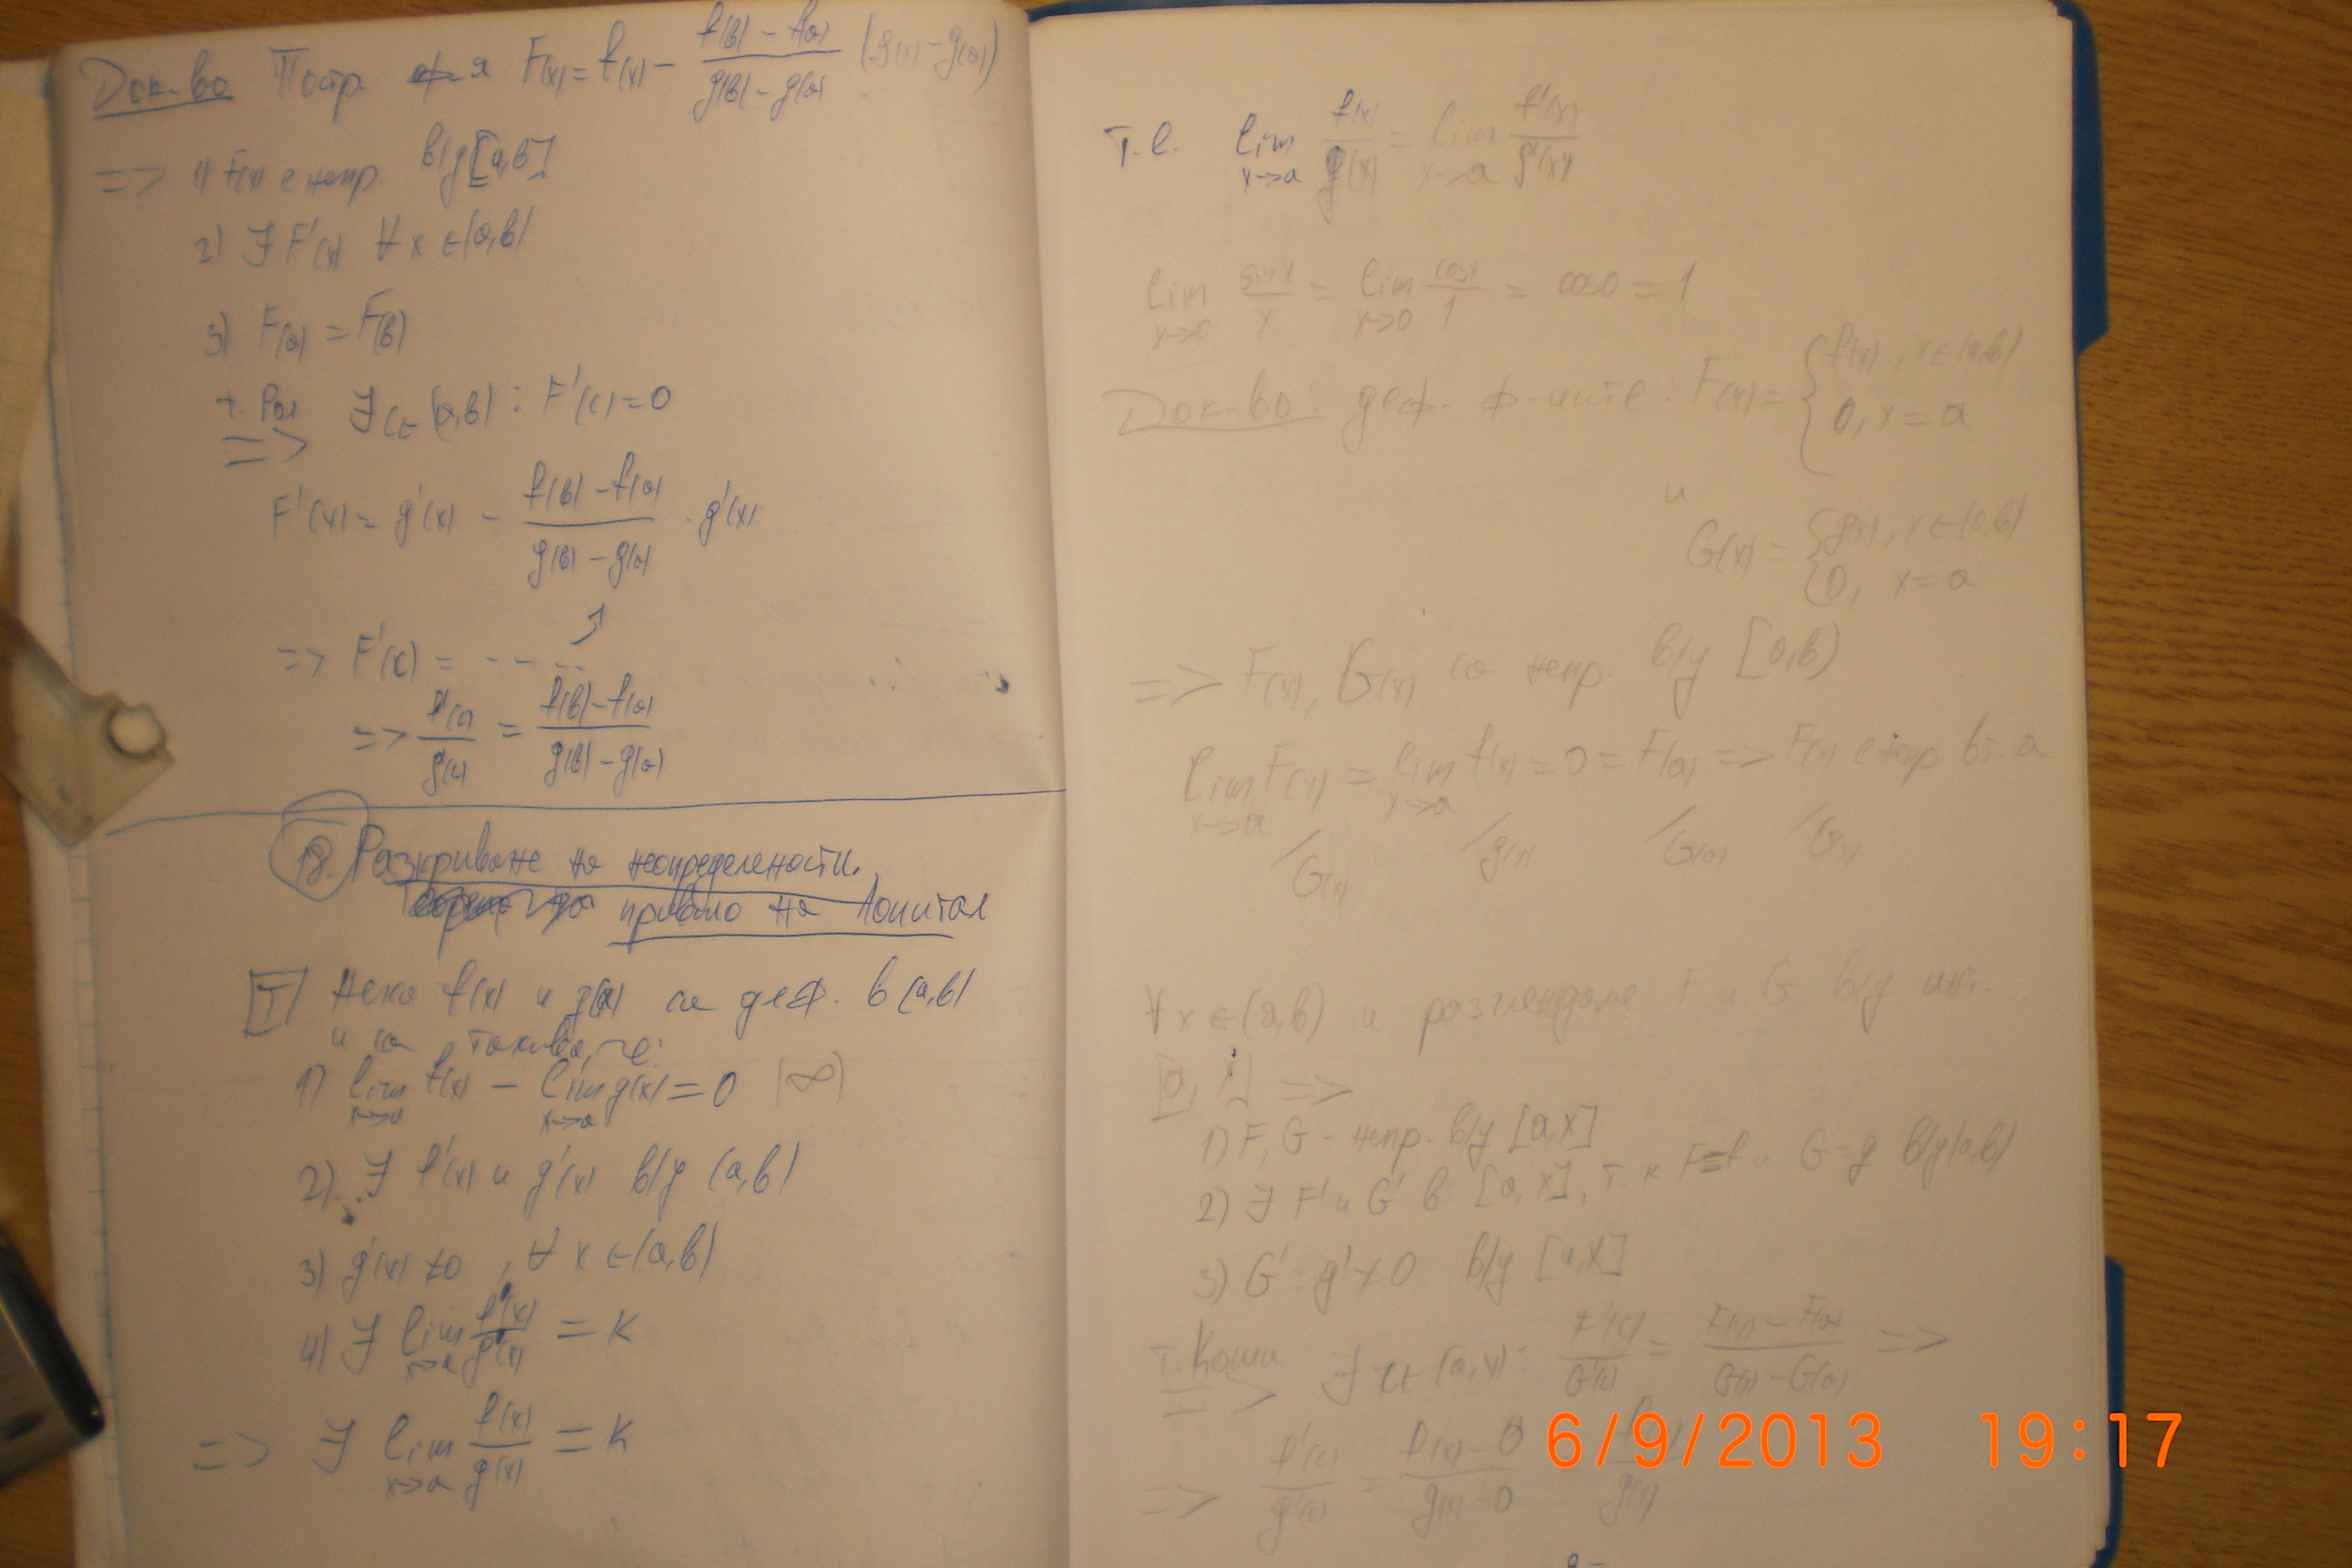 Док-во Постр ф-я F(x) = f(x) - (f(b) - f(a))/(g(b) - g(a)) (g(x) - g(a))
=> 1) F(x) е непр. в/у [a,b]
2) ∃ F'(x) ∀ x ∈ (a,b)
3) F(a) = F(b)
т. Рол => ∃ c ∈ (a,b) : F'(c) = 0
F'(x) = g'(x) - (f(b) - f(a))/(g(b) - g(a)) . g'(x)
=> F'(c) = - - - ..
=> f'(c)/g'(c) = (f(b) - f(a))/(g(b) - g(a))
18. Разкриване на неопределености.
правило на Лопитал
[T] Нека f(x) и g(x) са деф. в (a,b)
и са такива, че:
1) lim x->a f(x) = lim x->a g(x) = 0 (∞)
2) ∃ f'(x) и g'(x) в/у (a,b)
3) g'(x) ≠ 0 , ∀ x ∈ (a,b)
4) ∃ lim x->a f'(x)/g'(x) = K
=> ∃ lim x->a f(x)/g(x) = K
Т.е. lim x->a f(x)/g(x) = lim x->a f'(x)/g'(x)
lim x->0 sin x/x = lim x->0 cos x/1 = cos 0 = 1
Док-во: деф. ф-иите : F(x) = { f(x), x ∈ (a,b)
0, x = a
и
G(x) = { g(x), x ∈ (a,b)
0, x = a
=> F(x), G(x) са непр. в/у [a,b)
lim x->a F(x) = lim x->a f(x) = 0 = F(a) => F(x) е непр. в т. a
/G(x) /g(x) /G(a) /G(x)
∀ x ∈ (a,b) и разглеждаме F и G в/у инт.
[a, x] =>
1) F, G - непр. в/у [a,x]
2) ∃ F' и G' в [a,x], т.к F≡f и G=g в/у (a,b)
3) G' = g' ≠ 0 в/у [a,x]
т. Коши => ∃ c ∈ (a,x) : F'(c)/G'(c) = (F(x) - F(a))/(G(x) - G(a)) =>
=> f'(c)/g'(c) = (f(x) - 0)/(g(x) - 0) f(x)/g(x)
6/9/2013 19:17